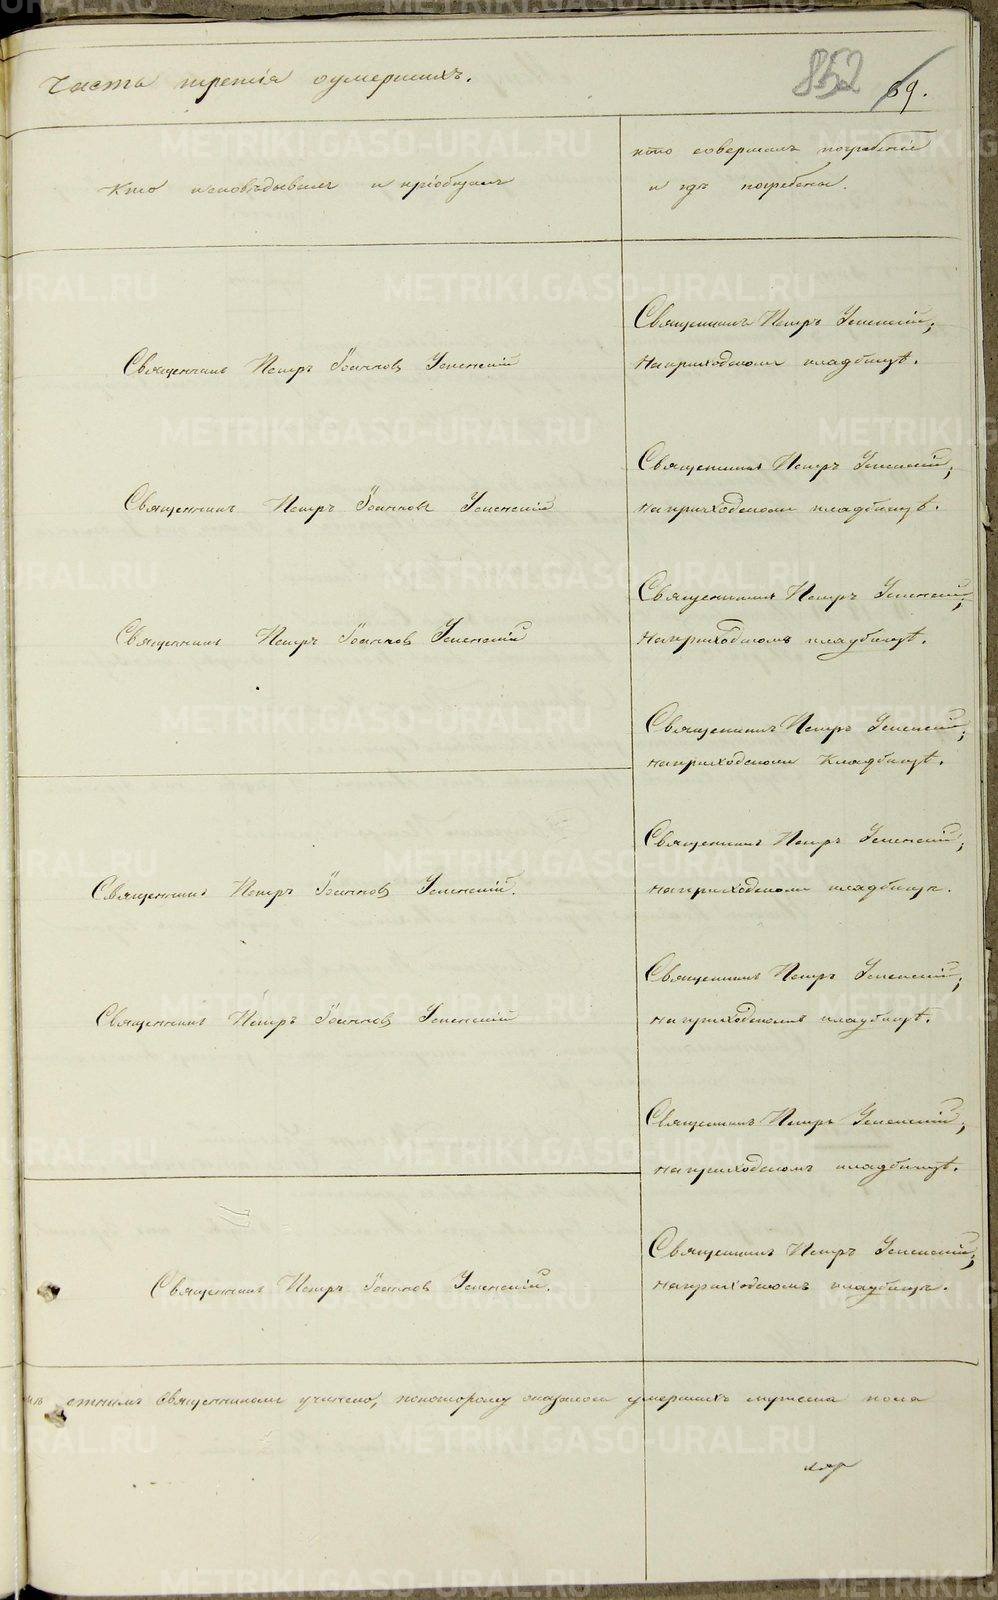 Часть третія оумершихъ.
852 69.
Кто исповѣдывалъ и пріобщалъ
кто совершалъ погребеніе
и гдѣ погребены.
Священникъ Петръ Іоанновъ Успенскій
Священникъ Петръ Успенскій;
на приходскомъ кладбищѣ.
Священникъ Петръ Іоанновъ Успенскій
Священникъ Петръ Успенскій;
на приходскомъ кладбищѣ.
Священникъ Петръ Іоанновъ Успенскій
Священникъ Петръ Успенскій;
на приходскомъ кладбищѣ.
Священникъ Петръ Успенскій;
на приходскомъ кладбищѣ.
Священникъ Петръ Іоанновъ Успенскій.
Священникъ Петръ Успенскій;
на приходскомъ кладбищѣ.
Священникъ Петръ Іоанновъ Успенскій
Священникъ Петръ Успенскій;
на приходскомъ кладбищѣ.
Священникъ Петръ Успенскій;
на приходскомъ кладбищѣ.
Священникъ Петръ Іоанновъ Успенскій.
Священникъ Петръ Успенскій;
на приходскомъ кладбищѣ.
священникомъ учинено, покоторому оказалось умершихъ мужеска пола
METRIKI.GASO-URAL.RU